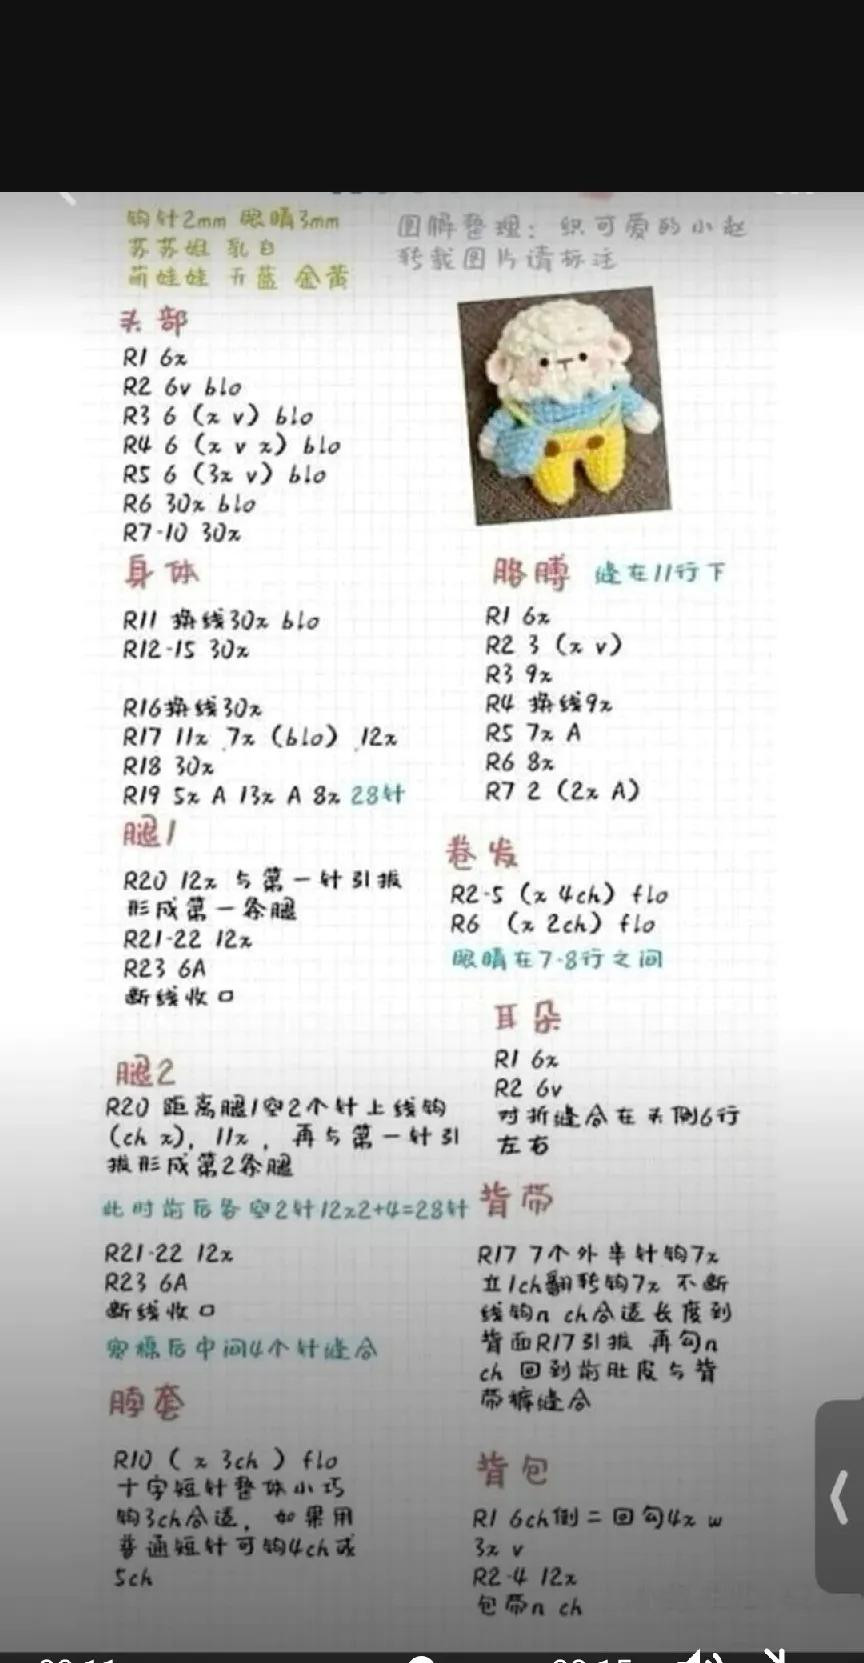 钩针2mm 眼睛3mm
苏苏姐 乳白
萌娃娃 天蓝 金黄
图解整理：织可爱的小赵
转载图片请标注
头部
R1 6x
R2 6v blo
R3 6（x v）blo
R4 6（x v x）blo
R5 6（3x v）blo
R6 30x blo
R7-10 30x
身体
R11 换线30x blo
R12-15 30x
R16换线30x
R17 11x 7x（blo）12x
R18 30x
R19 5x A 13x A 8x 28针
腿1
R20 12x 与第一针引拔
形成第一条腿
R21-22 12x
R23 6A
断线收口
腿2
R20 距离腿1空2个针上线钩
（ch x），11x，再与第一针引
拔形成第2条腿
此时前后各空2针12x2+4=28针
R21-22 12x
R23 6A
断线收口
后中间4个针缝合
脖套
R10（x 3ch）flo
十字短针整体小巧
钩3ch合适，如果用
普通短针可钩4ch或
5ch
胳膊 缝在11行下
R1 6x
R2 3（x v）
R3 9x
R4 换线9x
R5 7x A
R6 8x
R7 2（2x A）
卷发
R2-5（x 4ch）flo
R6（x 2ch）flo
眼睛在7-8行之间
耳朵
R1 6x
R2 6v
对折缝合在头侧6行
左右
背带
R17 7个外半针钩7x
立1ch翻转钩7x 不断
线钩n ch合适长度到
背面R17引拔 再勾n
ch 回到前肚皮与背
带裤缝合
背包
R1 6ch倒二回勾4x w
3x v
R2-4 12x
包带n ch